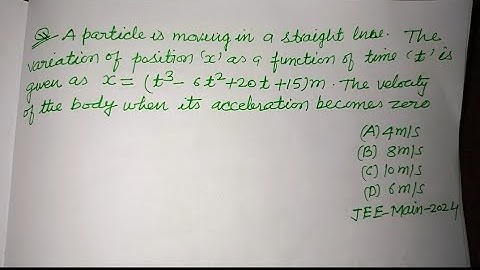 Q- A particle is moving in a straight line. The
variation of position 'x' as a function of time 't' is
given as x = (t³ - 6t² + 20t + 15)m. The velocity
of the body when its acceleration becomes zero
(A) 4m/s
(B) 8m/s
(C) 10m/s
(D) 6m/s
JEE-Main-2024